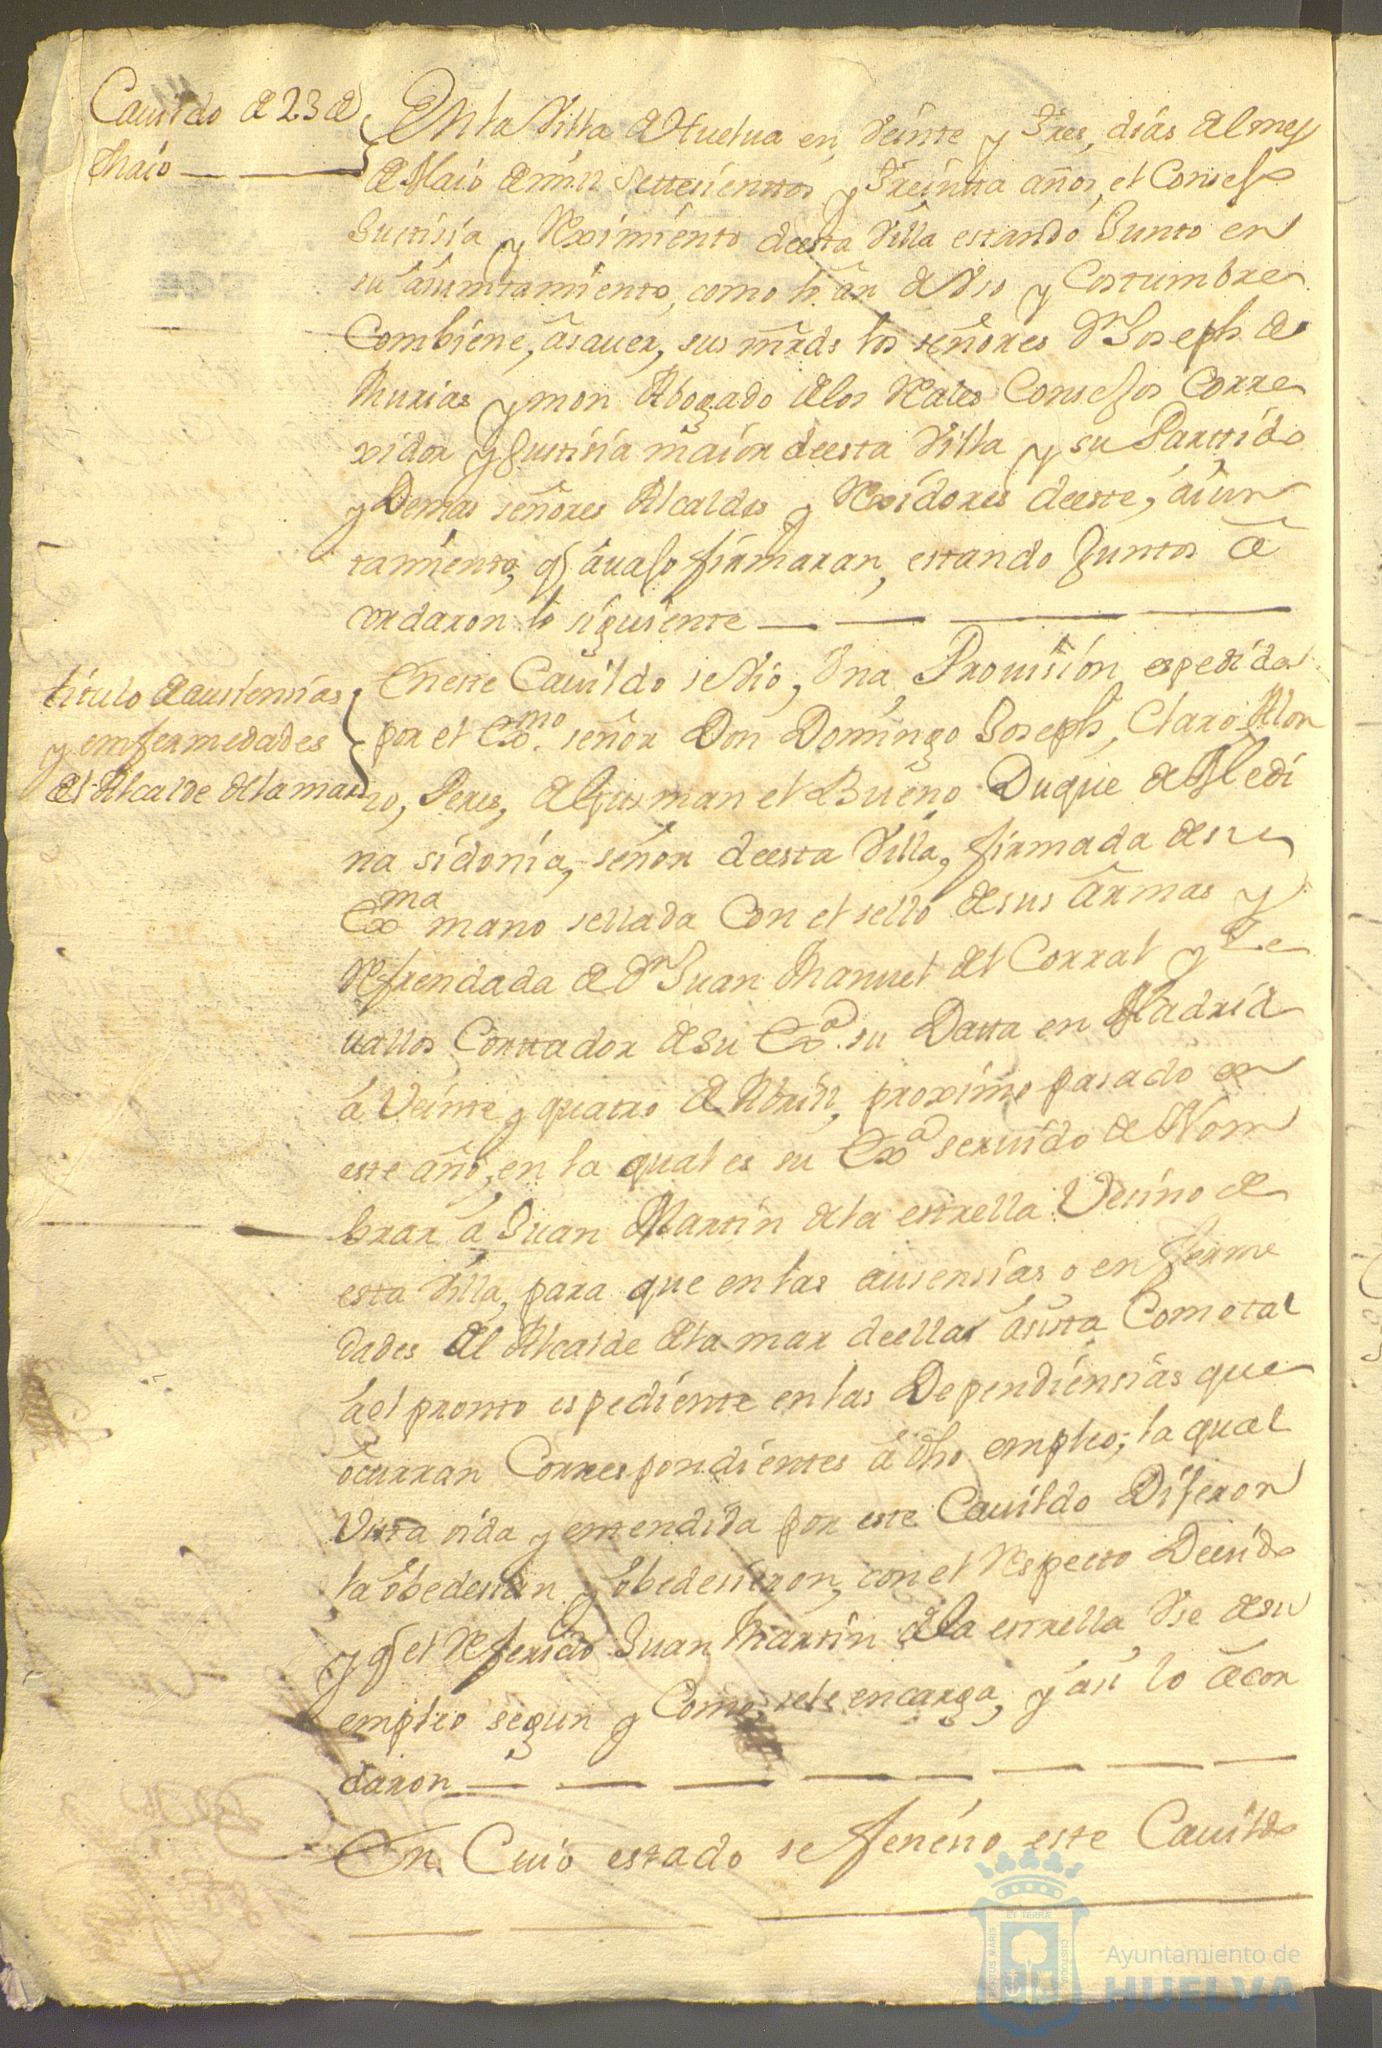 Cauildo de 23 de
Maio
En la Villa de Huelua en Veinte y Tres, dias del mes
de Maio de mill Settesienttos y Treintta años, el Consejo
Justisia y Reximiento de esta Villa estando Junto en
su aiuntamiento, como lo an de Vso y Costumbre
Combiene, asauer, sus mrds los señores Dn Joseph de
Murias ymon Abogado de los Rales Consejos Corre
xidor y Justisia maior de esta Villa y su Parttido
y Demas señores Alcaldes y Rexidores de este, aiun
tamiento, q auajo firmaran, estando Juntos A
cordaron lo siguiente
titulo de ausiensias
y enfermedades
del Alcalde de la mar
En este Cauildo se Vio, Vna, Prouision espedida
por el Exmo. señor Don Domingo Joseph, Claro Alon
so, Peres, de Gusman el Bueno Duque de Medi
na sidonia, señor de esta Villa, firmada de su
Exma mano sellada Con el sello de sus Armas y
Refrendada de Dn Juan Manuel del Corral y Ze
uallos Conttador de Su Exa. su Datta en Madrid
a Veinte y quatro de Abrill, proximo pasado en
este año, en la qual es su Exa seruido de Nom
brar a Juan Martin de la estrella Vesino de
esta Villa, para que en las ausensias o en ferme
dades del Alcalde de la mar de ella asista Como tal
a el pronto espediente en las Dependiensias que
ocurran Correspondientes a dho empleo; la qual
Vista oida y entendida por este Cauildo Dijeron
la obedesian y obedesieron, con el Respecto Deuido
y q el Referido Juan Martin de la estrella Vse de su
empleo segun y Como se le encarga, y asi lo acor
daron
En Cuio estado se fenesio este Cauildo
Ayuntamiento de
HUELVA